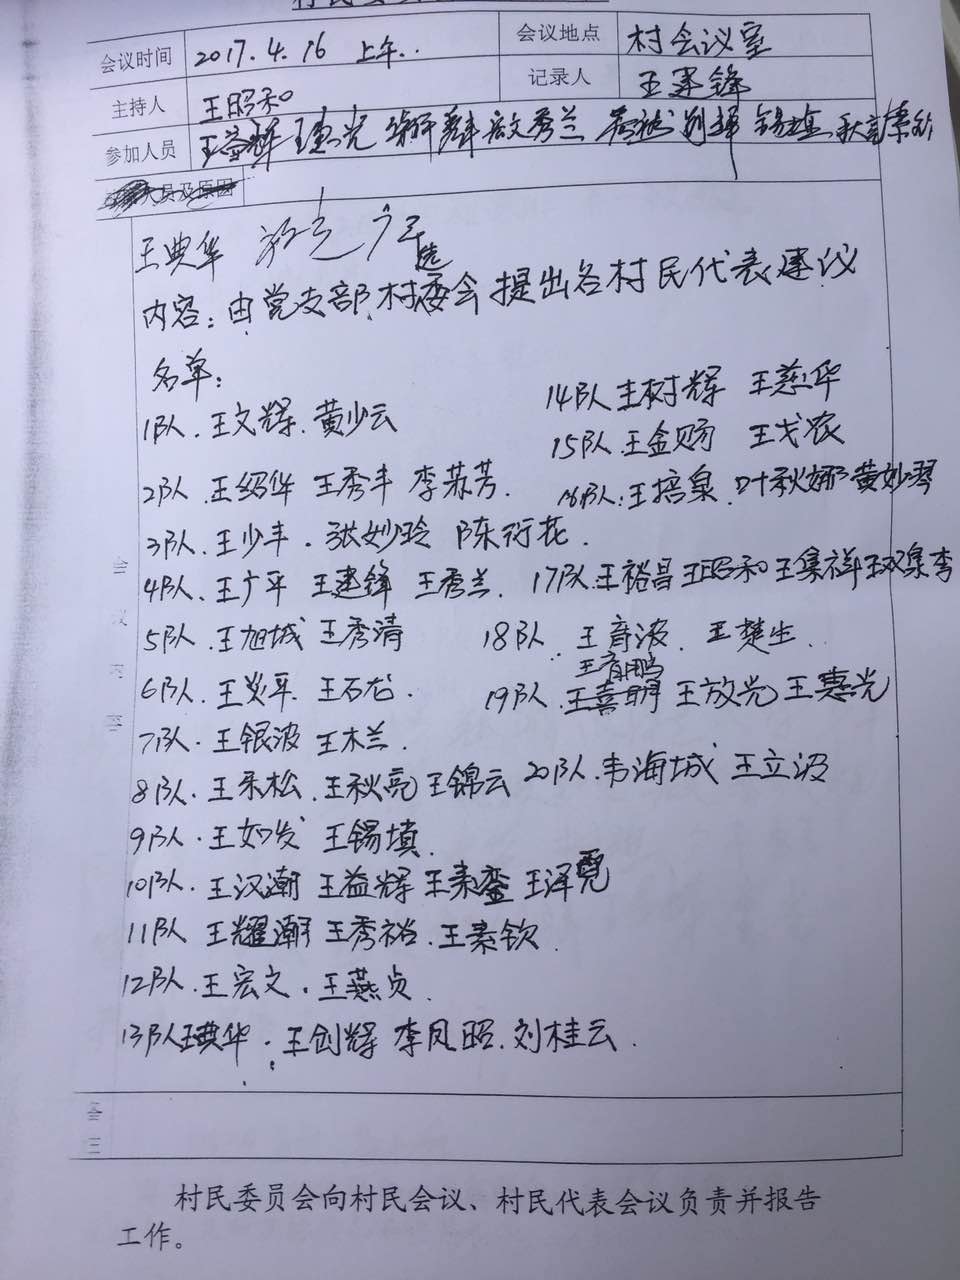 会议时间 2017.4.16 上午.. 会议地点 村会议室
主持人 王昭和 记录人 王建锋
参加人员 王益辉 王惠光 宏文 秀兰
人员及原因
王典华
内容：由党支部.村委会提出各村民代表建议
选
名单：
1队.王文辉.黄少云
14队 王树辉 王慈华
15队.王金赐 王戈农
2队.王绍华 王秀丰 李苏芳.
16队:王培泉.叶秋娜 黄妙琴
3队.王少丰.张妙玲 陈衍花.
4队.王广平 王建锋 王秀兰.
17队.王裕昌 王昭和 王集祥 王双泉
5队.王旭城 王秀清
18队. 王育波. 王楚生.
6队.王炎平 王石龙.
王育鹏
19队.王喜明 王放光 王惠光
7队.王银波 王木兰.
8队.王来松.王秋亮 王锦云
20队.韦海城 王立波
9队.王如发 王锡填.
10队.王汉潮 王益辉 王素銮 王泽霓
11队 王耀潮 王秀裕.王素钦.
12队.王宏文.王燕贞.
13队 王典华.王创辉 李凤昭.刘桂云.
会议内容
村民委员会向村民会议、村民代表会议负责并报告
工作。